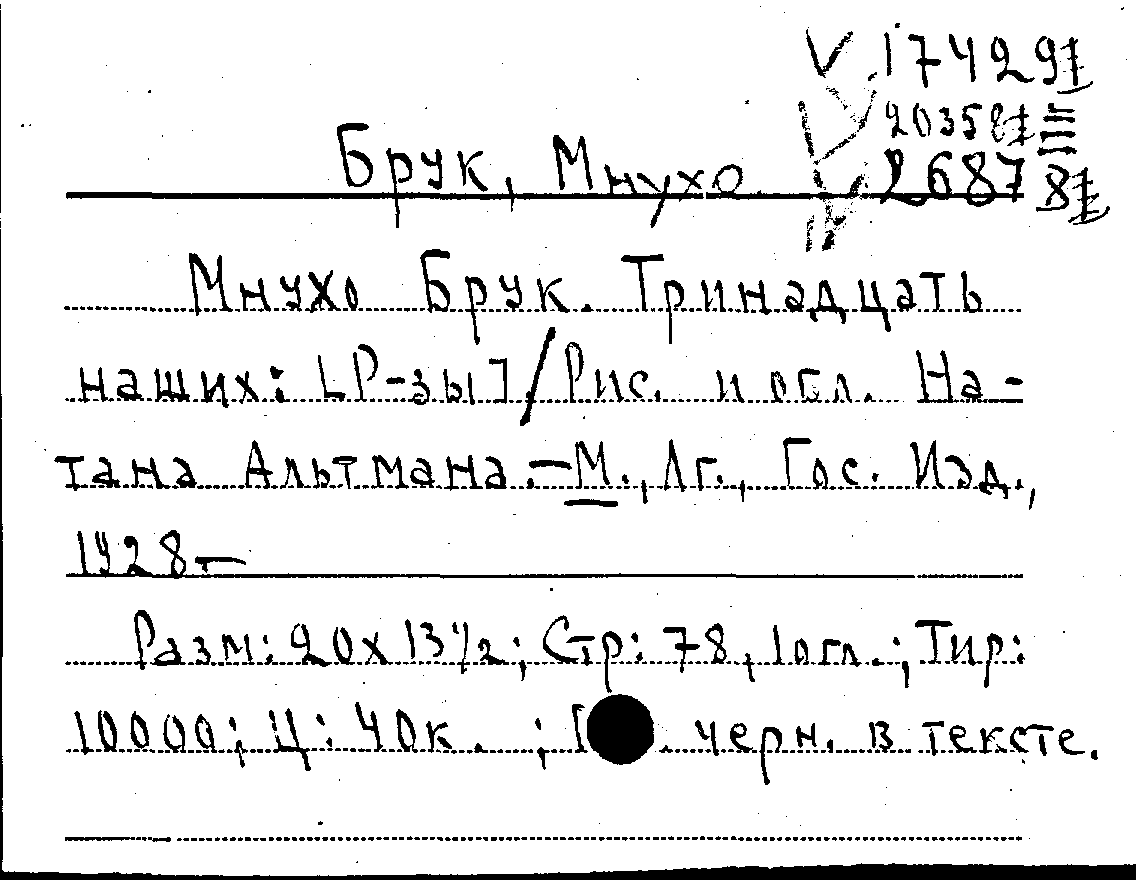 174291
203581
Брук, Мнухо 26878
Мнухо Брук. Тринадцать
наших: [Р-зы] / Рис. и огл. На-
тана Альтмана.—М., Лг., Гос. Изд.,
1928—
Разм: 20х13½; Стр: 78, 1огл.; Тир:
10000; Ц: 40к. ; [ . черн. в тексте.